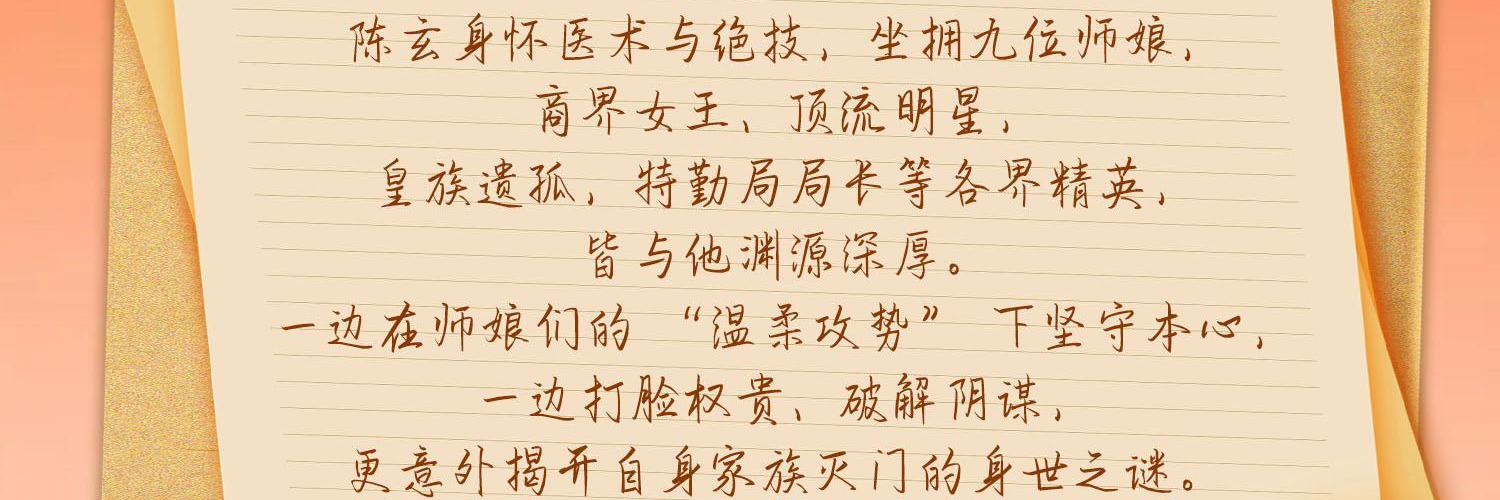 陈玄身怀医术与绝技，坐拥九位师娘，
商界女王、顶流明星，
皇族遗孤，特勤局局长等各界精英，
皆与他渊源深厚。
一边在师娘们的“温柔攻势”下坚守本心，
一边打脸权贵、破解阴谋，
更意外揭开自身家族灭门的身世之谜。